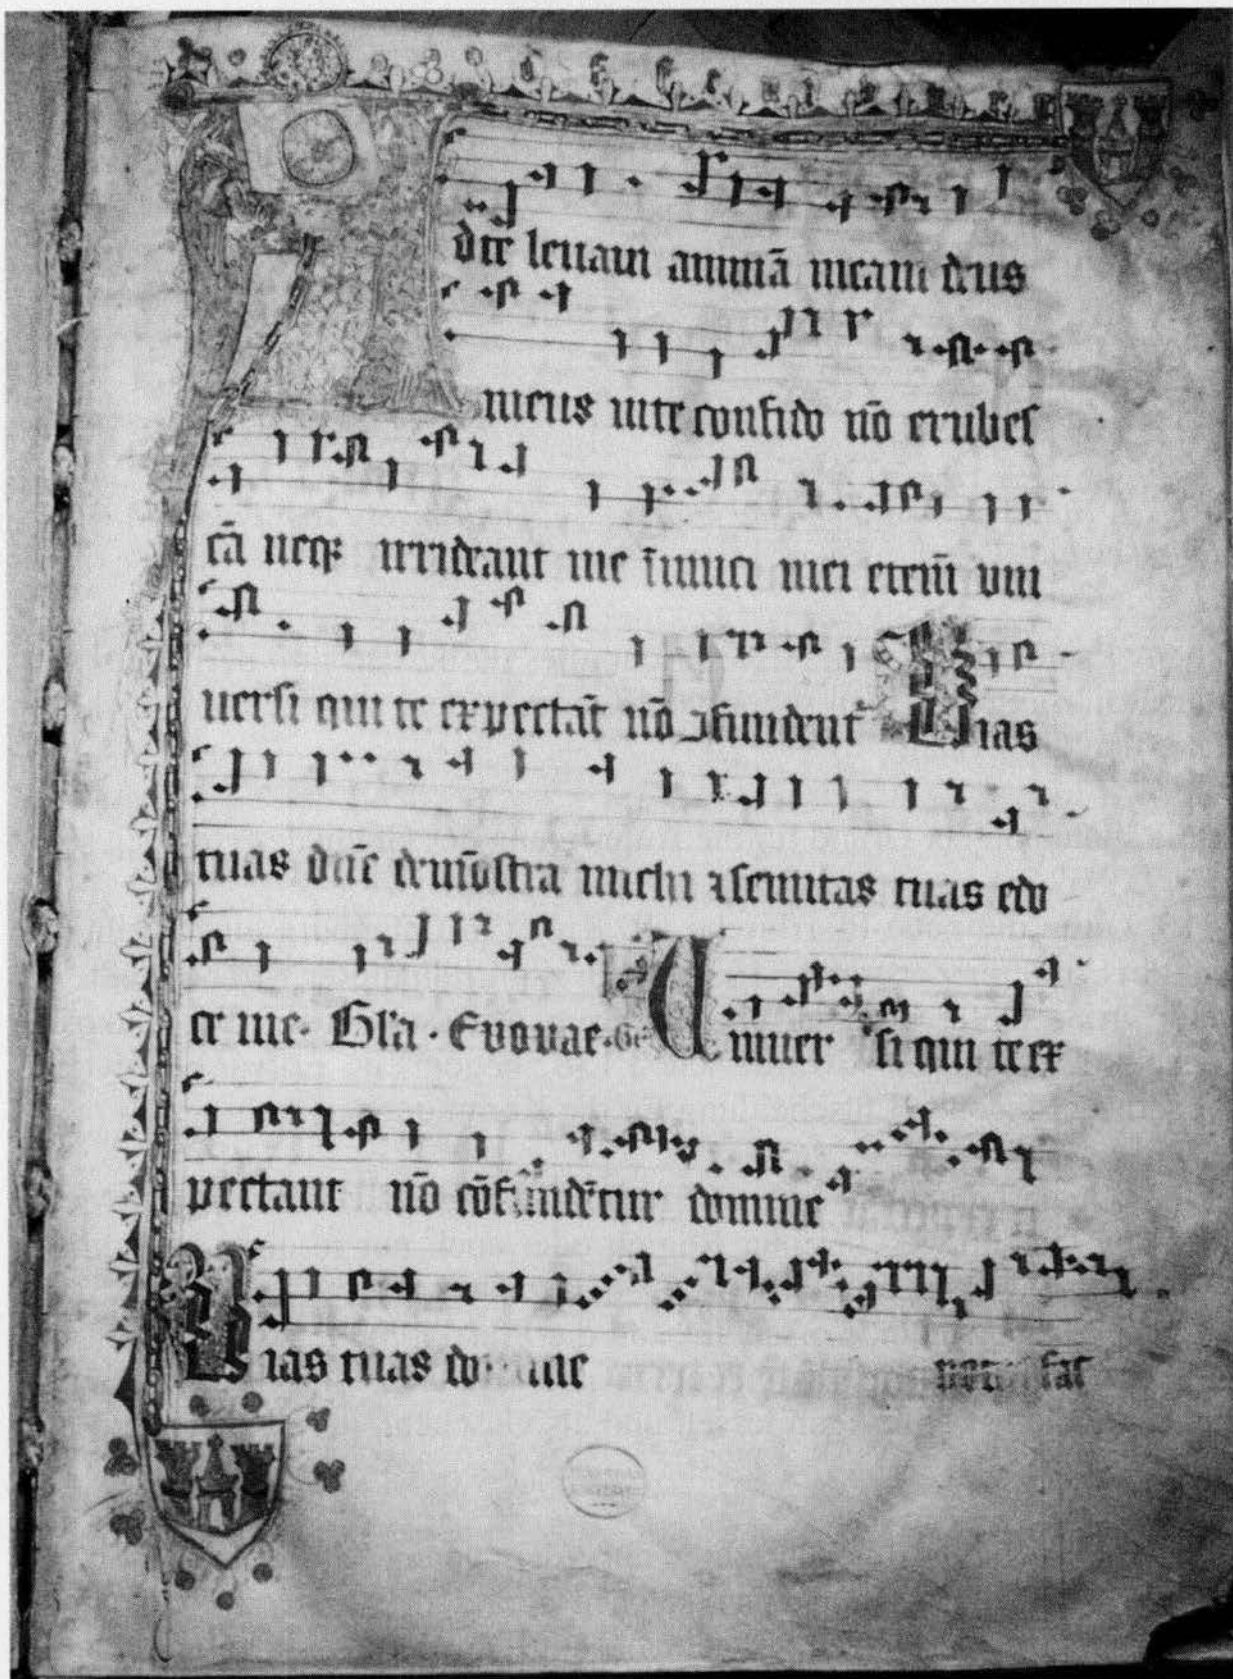 A dte leuaui animā meam deus
meus inte confido nō erubes
cā neqꝫ irrideant me inimici mei eteni᷑ vni
uersi qui te expectāt nō ꝯfundent᷑ Vias
tuas dn̄e demōstra michi ⁊ semitas tuas edo
ce me. Gl̄a. Euouae. Vniuer si qui te ex
pectant nō cōfundētur domine
Vias tuas domine notas fac